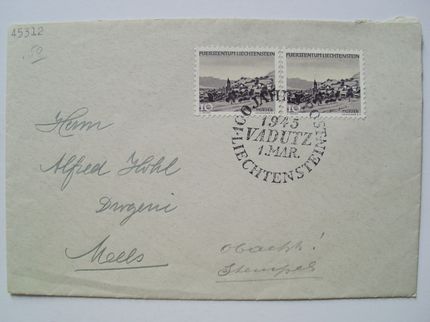 45312
.50
FUERSTENTUM LIECHTENSTEIN
FUERSTENTUM LIECHTENSTEIN
10
10
100 JAHRE POST
1945
VADUTZ
1. MAR.
LIECHTENSTEIN
Herrn
Alfred Hohl
Drogerie
Meels
Obacht!
Stempel